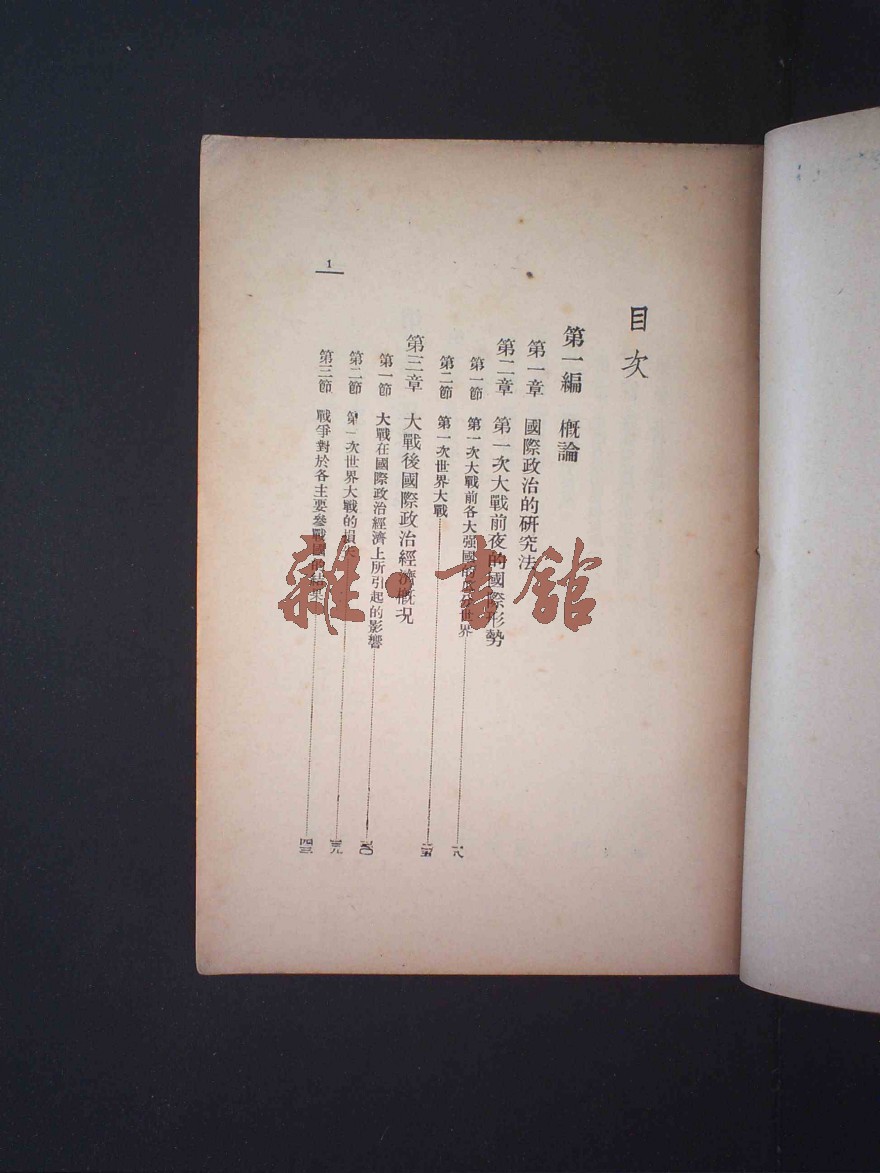 目次
第一編 概論
第一章 國際政治的研究法
第二章 第一次大戰前夜的國際形勢
第一節 第一次大戰前各大强國的瓜分世界 一八
第二節 第一次世界大戰 二五
第三章 大戰後國際政治經濟概況
第一節 大戰在國際政治經濟上所引起的影響 三〇
第二節 第一次世界大戰的損失 三九
第三節 戰爭對於各主要參戰國的結果 四三
1
雜·書館